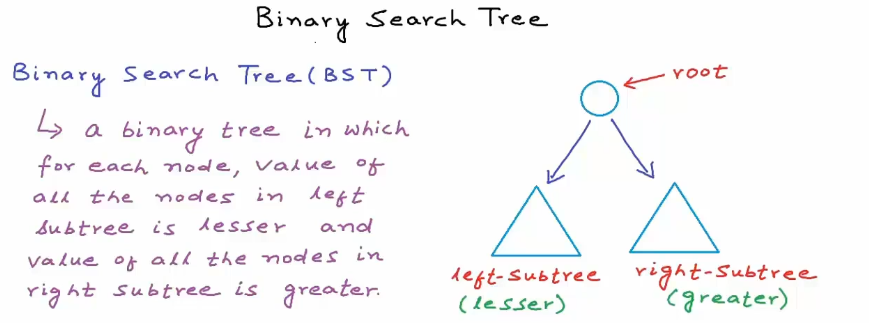 Binary Search Tree
Binary Search Tree (BST)
↳ a binary tree in which
for each node, value of
all the nodes in left
subtree is lesser and
value of all the nodes in
right subtree is greater.
root
left-subtree
(lesser)
right-subtree
(greater)